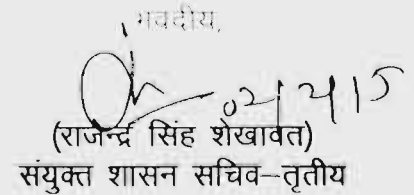 भवदीय,
02/2/15
(राजेन्द्र सिंह शेखावत)
संयुक्त शासन सचिव–तृतीय